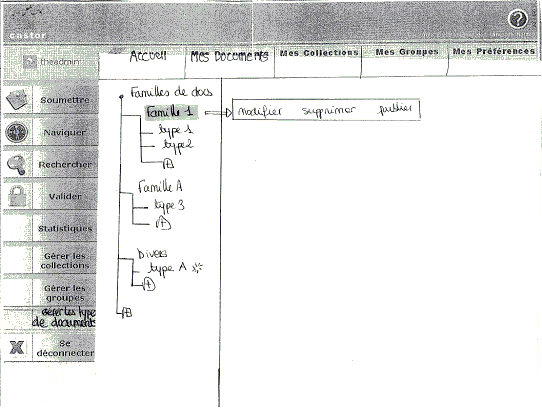 castor
theadmin
Accueil
Mes Documents
Mes Collections
Mes Groupes
Mes Préférences
Soumettre
Naviguer
Rechercher
Valider
Statistiques
Gérer les
collections
Gérer les
groupes
Gérer les types
de documents
Se
déconnecter
Familles de docs
Famille 1
modifier supprimer publier
type 1
type 2
+
Famille A
type 3
+
Divers
type A
+
+